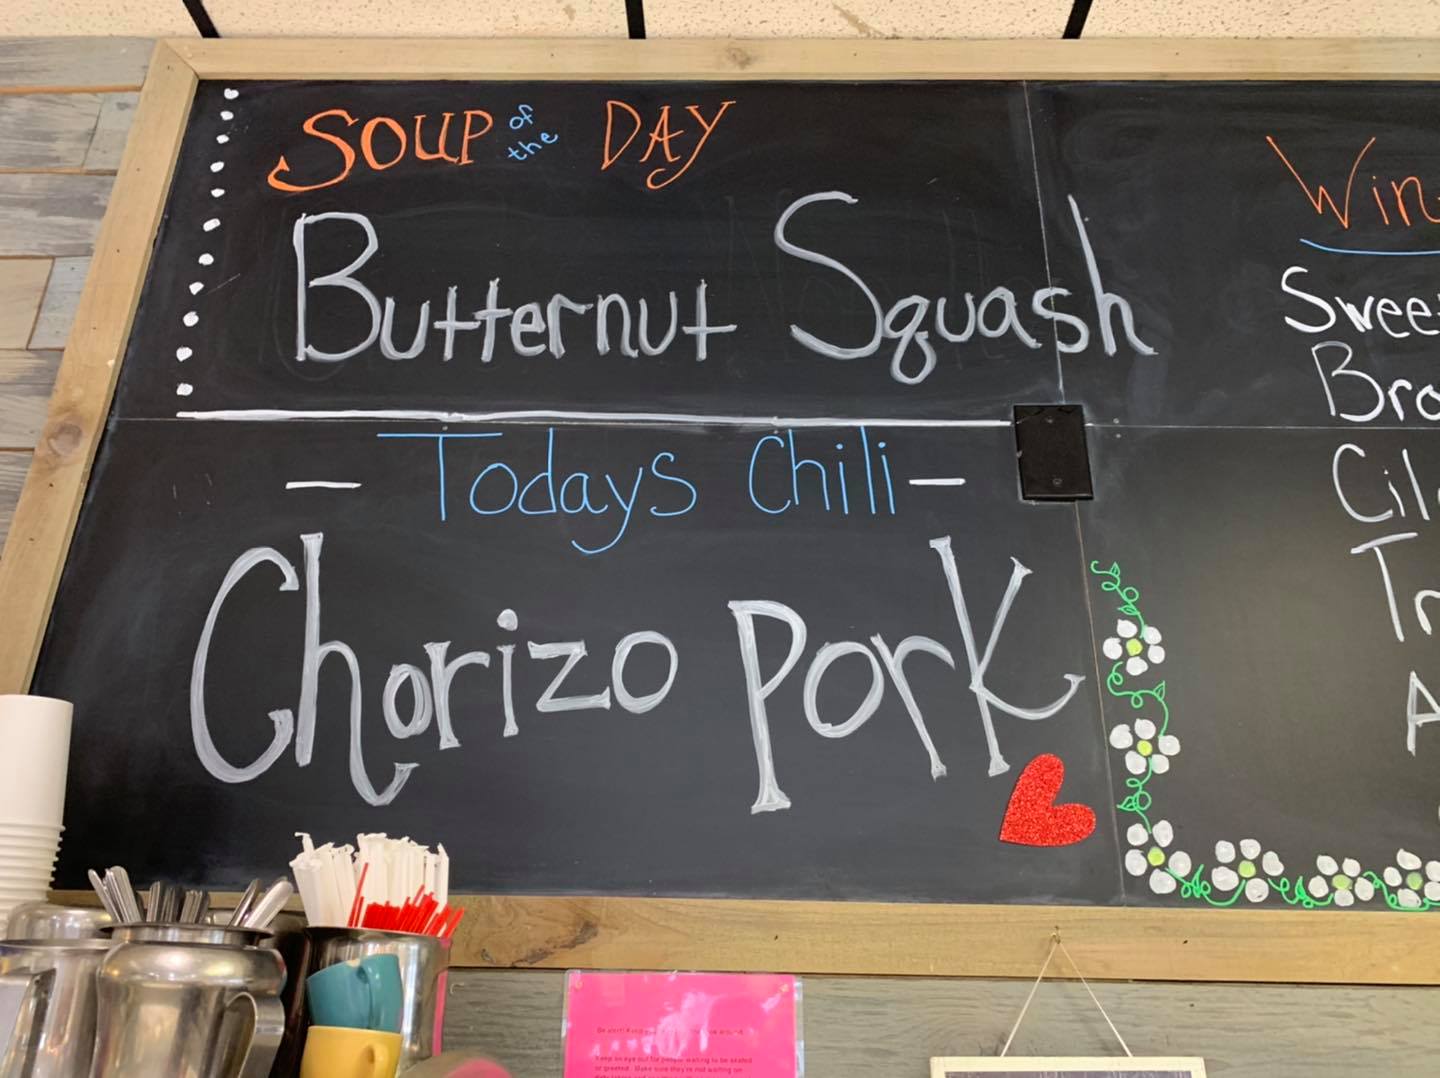 SOUP of the DAY
Butternut Squash
Todays Chili
Chorizo Pork
Win
Swee
Bro
Cil
Tr
A
Keep an eye out for people waiting to be seated
or greeted. Make sure they're not waiting on